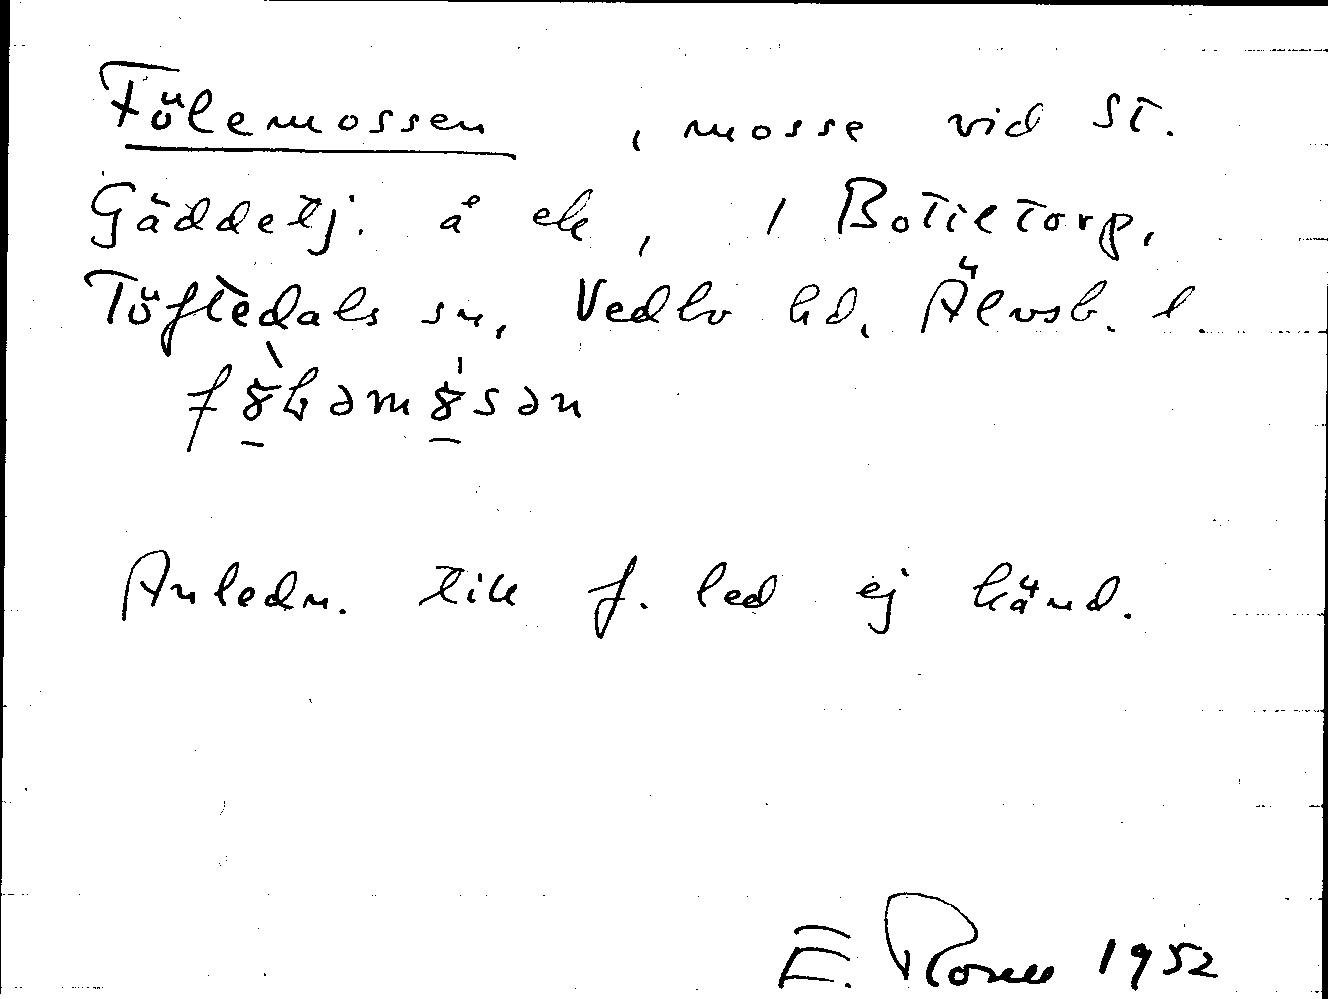 Fölemossen, mosse vid St.
Gäddetj. å ek, i Botiltorp,
Töftedals sn, Vedbo hd, Älvsb. l.
Anledn. till f. led ej känd.
E. 1952